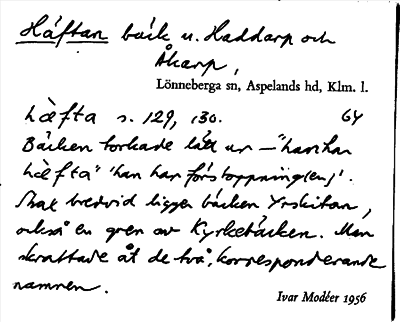 Häftan bäck u. Haddarp och
Åkarp,
Lönneberga sn, Aspelands hd, Klm. l.
hæ̀fta s. 129, 130. GY
Bäcken torkade lätt ur – "han har
hæ̀fta" 'han har förstoppning(en)'.
Strax bredvid ligger bäcken Yrskitan,
också en gren av Kyrkebäcken. Man
skrattade åt de två, korresponderande
namnen.
Ivar Modéer 1956